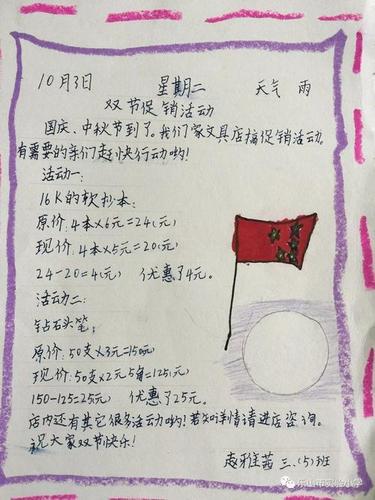 10月3日 星期二 天气 雨
双节促销活动
国庆、中秋节到了。我们家文具店搞促销活动。
有需要的亲们赶快行动哟!
活动一:
16K的软抄本:
原价:4本×6元=24(元)
现价:4本×5元=20(元)
24-20=4(元) 优惠了4元。
活动二:
钻石头笔:
原价:50支×3元=150元
现价:50支×2元5角=125(元)
150-125=25元) 优惠了25元。
店内还有其它很多活动哟!若知详情请进店咨询。
祝大家双节快乐!
赵雅茜 三.(5)班
乐山市实验小学